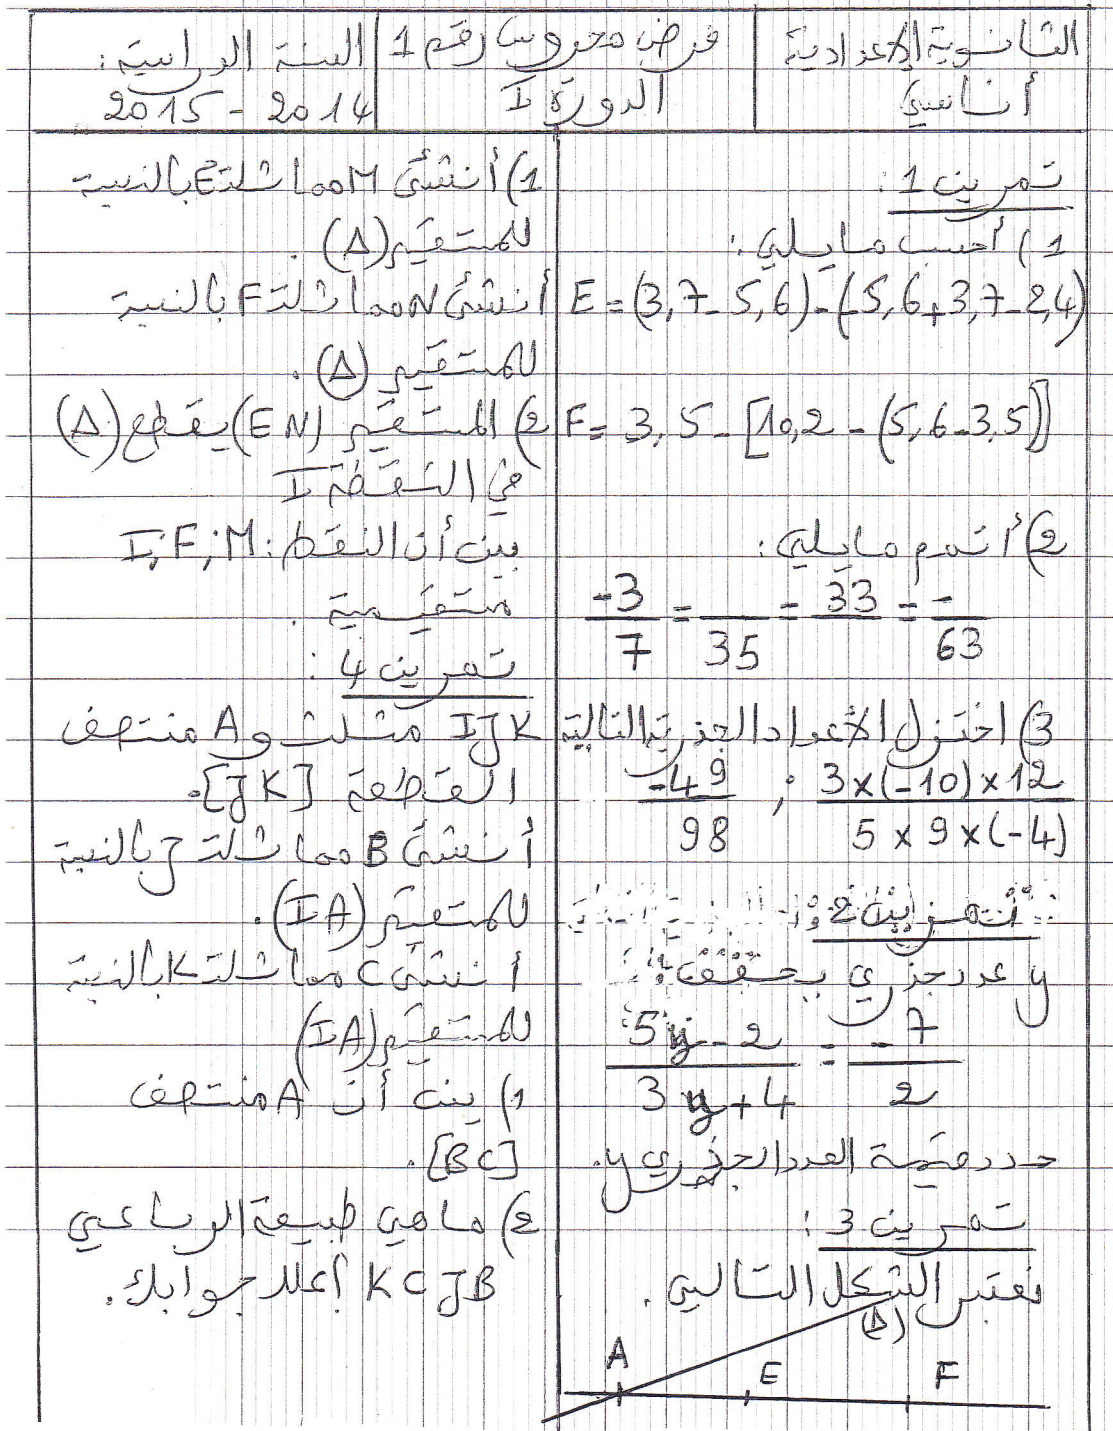 الثانوية الإعدادية
أناسي
فرض محروس رقم 1
الدورة I
السنة الدراسية:
2014 - 2015
تمرين 1:
1) أحسب ما يلي:
E = (3,7 - 5,6) - (-5,6 + 3,7 - 2,4)
F = 3,5 - [10,2 - (5,6 - 3,5)]
2) أتمم ما يلي:
-3/7 = /35 = 33/ = -/63
3) اختزل الأعداد الجذرية التالية
-49/98 ; 3×(-10)×12/5×9×(-4)
تمرين 2
y عدد جذري يحقق:
5y - 2/3y + 4 = -7/2
حدد قيمة العدد الجذري y.
تمرين 3:
نعتبر الشكل التالي.
(Δ)
A E F
1) أنشئ M مماثلة E بالنسبة
للمستقيم (Δ).
أنشئ N مماثلة F بالنسبة
للمستقيم (Δ).
2) المستقيم (EN) يقطع (Δ)
في النقطة I
بين أن النقط: I; F; M
مستقيمية.
تمرين 4:
IJK مثلث و A منتصف
القطعة [JK].
أنشئ B مماثلة J بالنسبة
للمستقيم (IA).
أنشئ C مماثلة K بالنسبة
للمستقيم (IA)
1) بين أن A منتصف
[BC].
2) ما هي طبيعة الرباعي
KCJB أعلل جوابك.